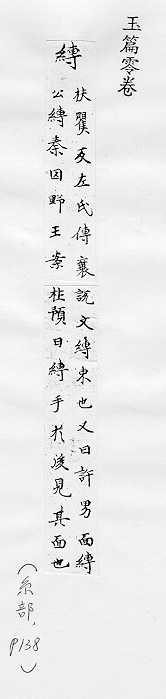 玉篇零卷
縛
扶矍反左氏傳襄
公縛秦囚野王案
說文縛束也又曰許男面縛
杜預曰縛手於後見其面也
(糸部,
p138)